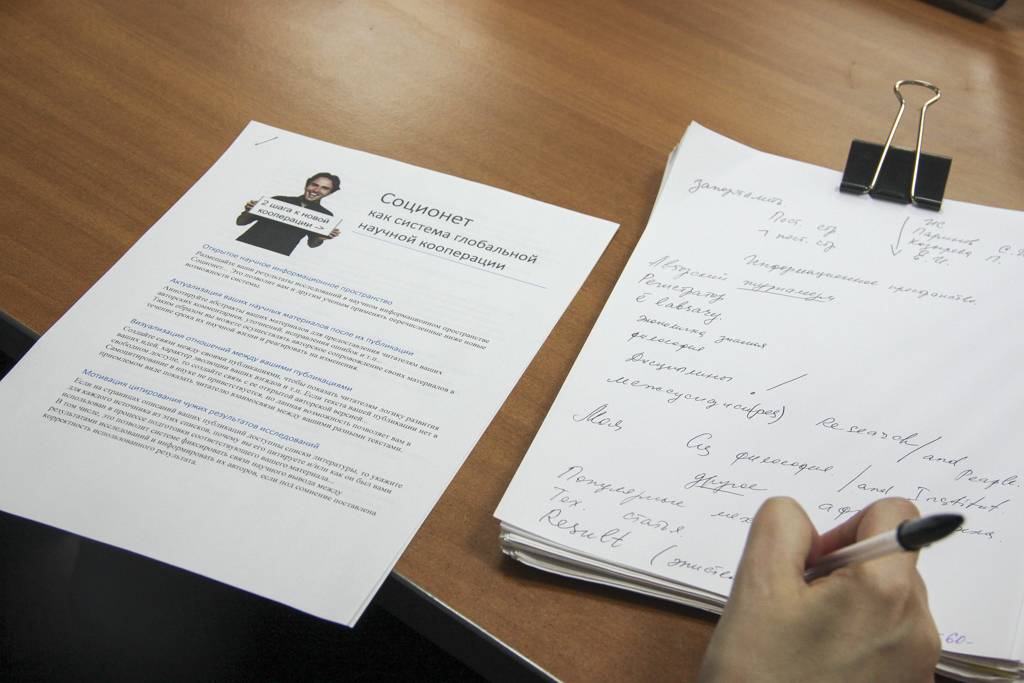 2 шага к новой
кооперации ->
Соционет
как система глобальной
научной кооперации
Открытое научное информационное пространство
Размещайте ваши результаты исследований в научном информационном пространстве
Соционет... Это позволит вам и другим ученым применять перечисленные ниже новые
возможности системы.
Актуализация ваших научных материалов после их публикации
Аннотируйте абстракты ваших материалов для предоставления читателям ваших
авторских комментариев, уточнений, исправления ошибок и т.п..
Таким образом вы можете осуществлять авторское сопровождение своих материалов в
течение срока их научной жизни и реагировать на изменения.
Визуализация отношений между вашими публикациями
Создайте связи между своими публикациями, чтобы показать читателям логику развития
ваших идей, характер эволюции ваших взглядов и т.п. Если текста вашей публикации нет в
свободном доступе, то создайте связь с ее открытой авторской версией...
Самоцитирование в науке не приветствуется, но данная возможность позволяет вам в
приемлемом виде показать читателю взаимосвязи между вашими разными текстами.
Мотивация цитирования чужих результатов исследований
Если на страницах описаний ваших публикаций доступны списки литературы, то укажите
для каждого источника из этих списков, почему вы его цитируете и/или как он был вами
использован в процессе подготовки соответствующего вашего материала...
В том числе, это позволит системе фиксировать связи научного вывода между
результатами исследований и информировать их авторов, если под сомнение поставлена
корректность использованного результата.
Пост. стр
1 пост. стр
ИС
Паринов С.
Когалова
Информационное пространство.
Авторский журнализм
Регистратор
Elabrary.
Экономика знания
философия
Дисциплины /
Research / and People.
Моя Сц философия. / and Institut.
другое
Популярные
Тех. статья.
Result
60-